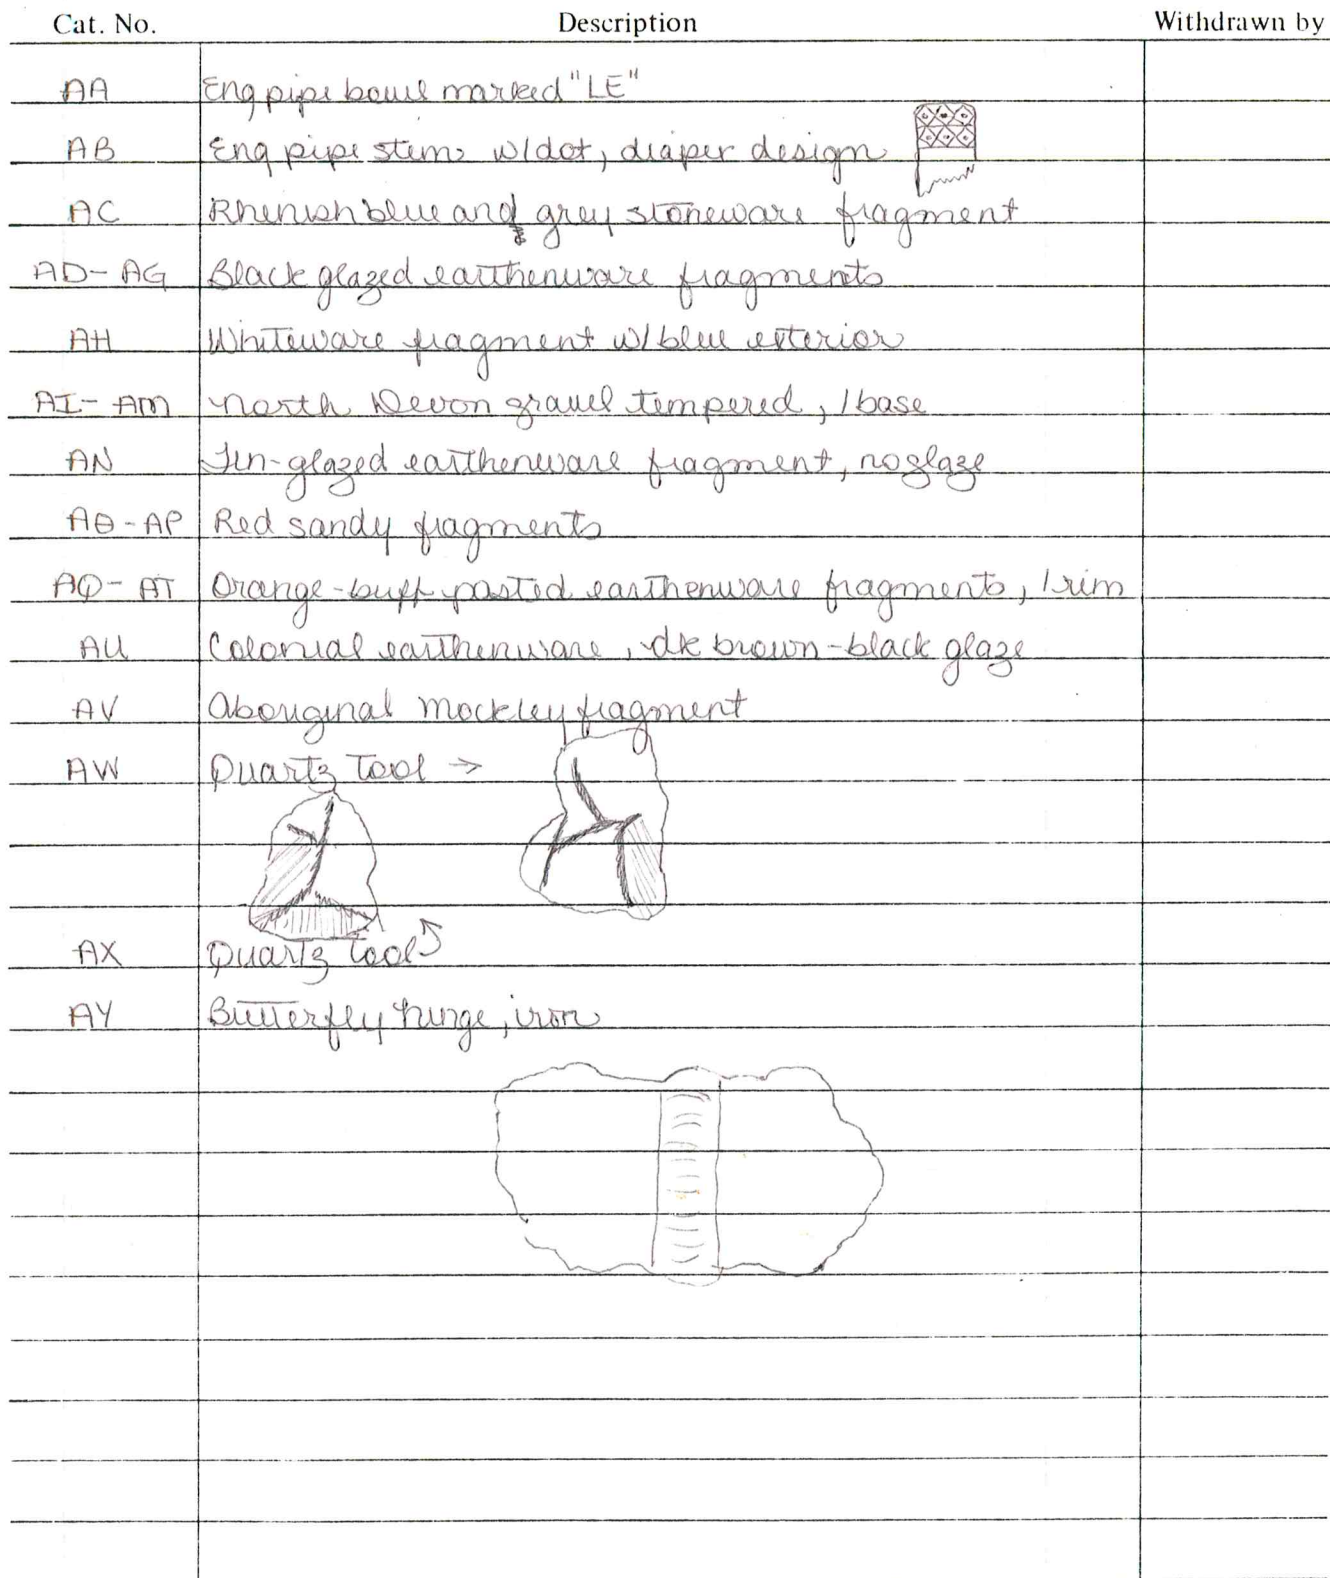 Cat. No. Description Withdrawn by
AA Eng pipe bowl marked "LE"
AB Eng pipe stem w/dot, diaper design
AC Rhenish blue and grey stoneware fragment
AD-AG Black glazed earthenware fragments
AH Whiteware fragment w/ blue exterior
AI-AM North Devon gravel tempered, 1 base
AN Tin-glazed earthenware fragment, no glaze
AO-AP Red sandy fragments
AQ-AT Orange-buff pasted earthenware fragments, 1 rim
AU Colonial earthenware, dk brown-black glaze
AV Aboriginal Mockley fragment
AW Quartz Tool →
AX Quartz Tool
AY Butterfly hinge, iron